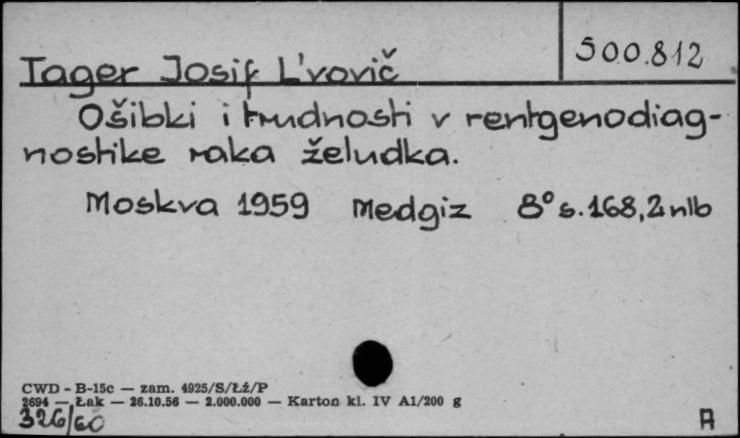 500.812
Tager Josif L'vovič
Ošibki i trudnosti v rentgenodiag-
nostike raka želudka.
Moskva 1959 Medgiz 8° s. 168, 2 nlb
CWD - B-15c — zam. 4925/S/Łź/P
2694 — Łak — 26.10.56 — 2.000.000 — Karton kl. IV A1/200 g
326/60
A